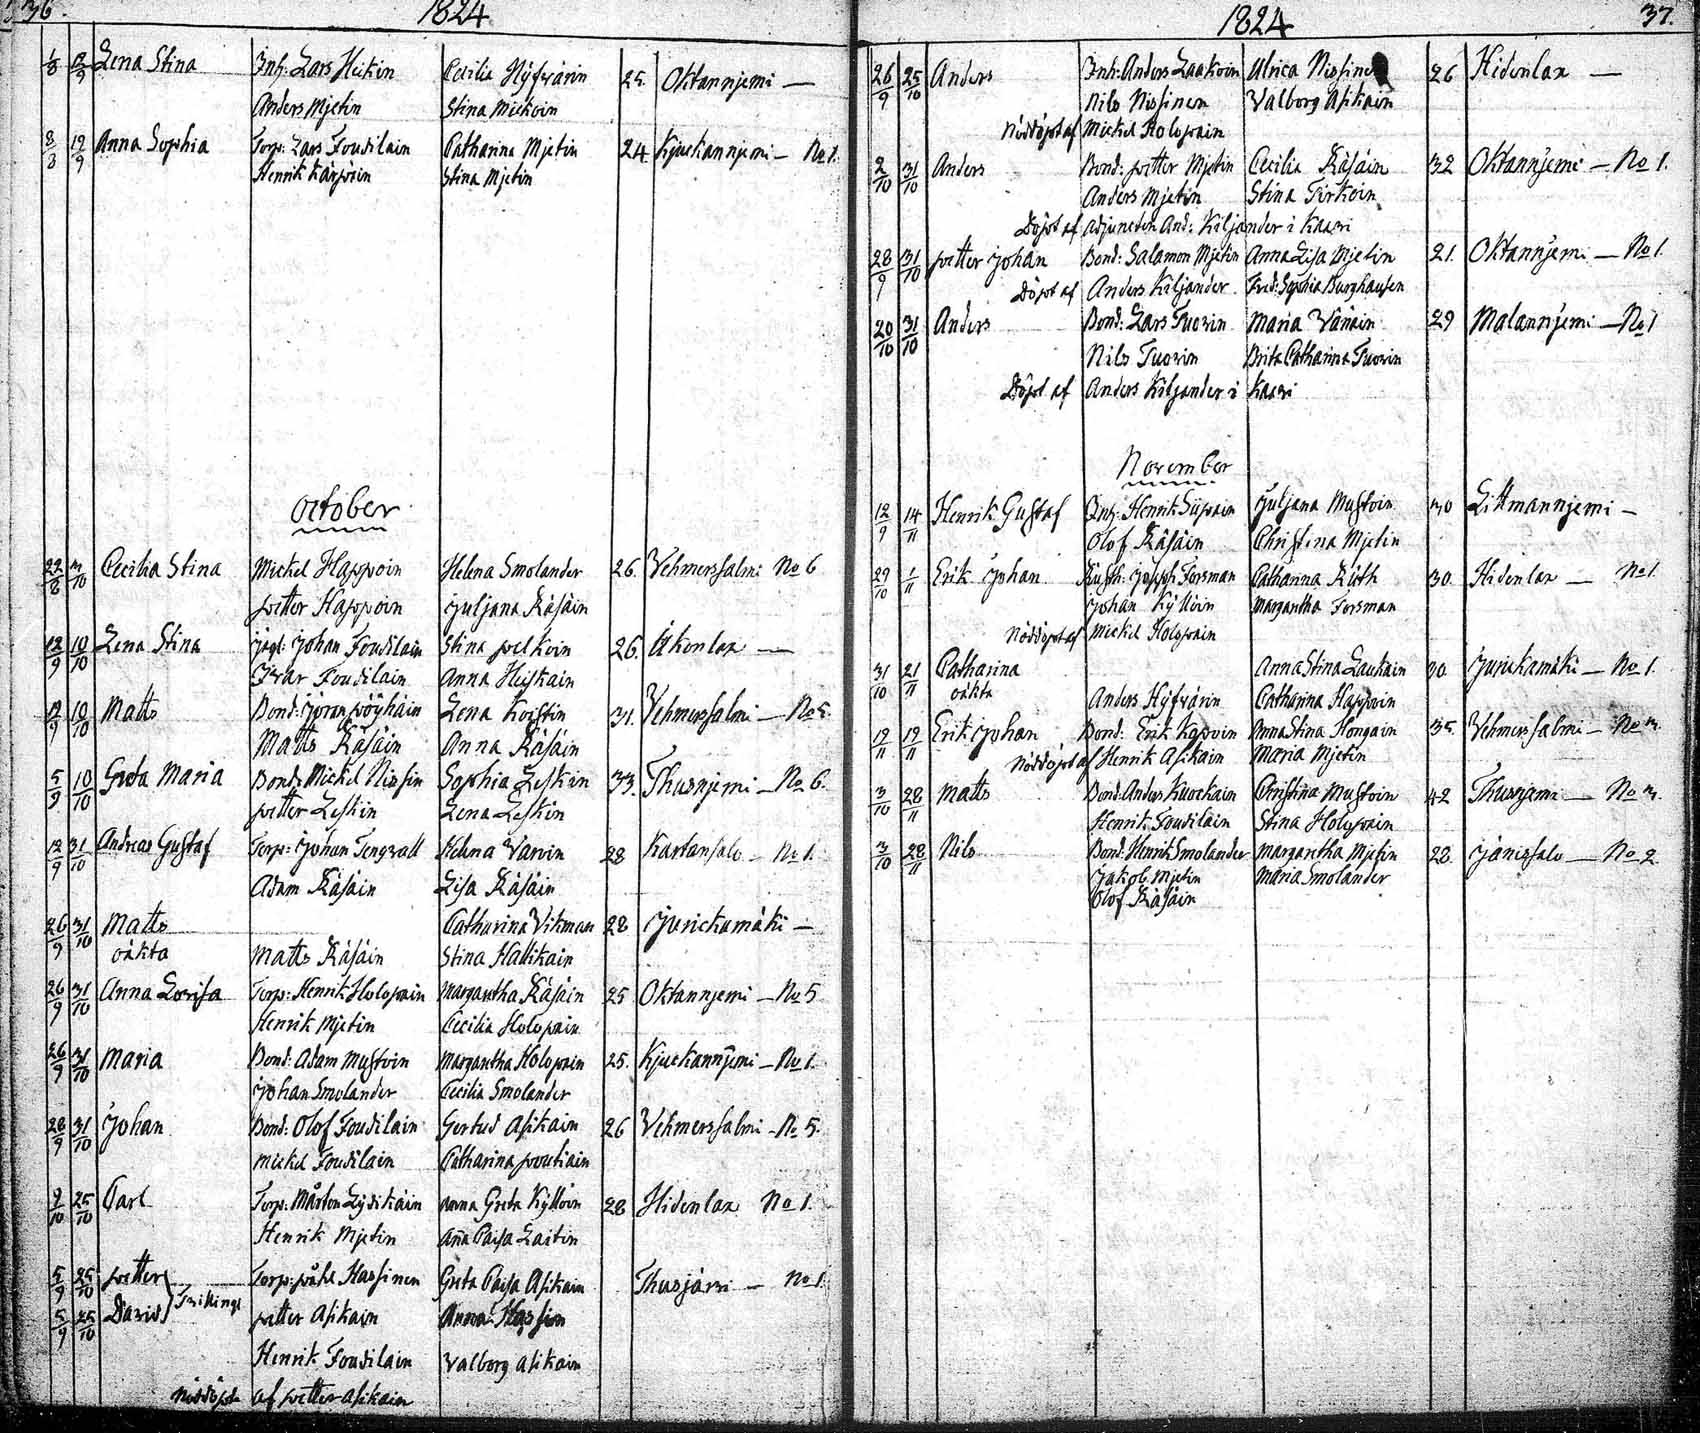 36
1824
1/8 12/9 Lena Stina Inh: Lars Heikin Cecilia Hyfvärin 25. Oktannjemi —
Anders Mjetin Stina Mickoin
8/8 19/9 Anna Sophia Torp: Lars Foudilain Catharina Mjetin 24 Kjuekannjemi — No 1.
Henrik Kärpäin Stina Mjetin
October
22/8 3/10 Cecilia Stina Mickel Happoin Helena Smolander 26. Vehmersalmi No 6
petter Happoin Juljana Räsäin
12/9 10/10 Lena Stina Johan Foudilain Stina pelkoin 26. Ukonlax —
Ivar Foudilain Anna Heiskain
10/10 Matts Bond: Göran pöyhäin Lena Koistin 31. Vehmersalmi — No 5.
Matts Räsäin Anna Räsäin
5/9 10/10 Greta Maria Bond: Mickel Nissin Sophia Leskin 33. Thusnjemi — No 6.
petter Leskin Lena Leskin
12/9 31/10 Andreas Gustaf Torp: Johan Tengvall Helena Varvin 28 Kartansalo — No 1.
Adam Räsäin Lisa Räsäin
26/9 31/10 Matts Catharina Vikman 28 Jurickamäki —
oäkta Matts Räsäin Stina Hallikain
26/9 31/10 Anna Lovisa Torp: Henrik Holopain Margaretha Räsäin 25 Oktannjemi — No 5
Henrik Mjetin Cecilia Holopain
26/9 31/10 Maria Bond: Adam Mustoin Margaretha Holopain 25. Kjuekannjemi — No 1.
Johan Smolander Cecilia Smolander
28/9 31/10 Johan Bond: Olof Foudilain Gertud Asikain 26 Vehmersalmi — No 5.
Mickel Foudilain Catharina poutiain
9/10 25/10 Carl Torp: Mårten Lydikäin Anna Greta Kyllöin 28 Hidenlax No 1.
Henrik Mjetin Anna Caisa Laitin
5/9 25/10 petter Torp: påhl Hassinen Greta Caisa Asikain Thusjärvi — No 1
5/9 25/10 David Tvillingr petter Asikain Anna Hassin
Henrik Foudilain Valborg Asikain
Nöddöpte af petter Asikain
1824
37.
26/9 25/10 Anders Inh: Anders Laakoin Ulrica Nissinen 26 Hidenlax —
Nils Nissinen Valborg Asikain
Nöddöpt af Mickel Holopain
2/10 31/10 Anders Bond: petter Mjetin Cecilia Räsäin 32 Oktannjemi — No 1.
Anders Mjetin Stina Tirkoin
Döpt af Adjuncten And: Kiljander i Kaavi
28/9 31/10 petter Johan Bond: Salamon Mjetin Anna Lisa Mjetin 21. Oktannjemi — No 1.
Döpt af Anders Kiljander Fred: Sophia Burghausen
20/10 31/10 Anders Bond: Lars Tuovin Maria Vänäin 29 Malannjemi — No 1
Nils Tuovin Brita Catharina Tuovin
Döpt af Anders Kiljander i Kaavi
November
12/9 14/11 Henrik Gustaf Inh: Henrik Siipain Juljana Mustoin 30 Littmannjemi —
Olof Räsäin Christina Mjetin
29/10 1/11 Erik Johan Joseph Forsman Catharina Rüth 30. Hidenlax — No 1.
Johan Kyllöin Margaretha Forsman
Nöddöpt af Mickel Holopain
31/10 21/11 Catharina Anna Stina Laukain 30 Jurickamäki — No 1.
oäkta Anders Hyfvärin Catharina Happoin
19/11 19/11 Erik Johan Bond: Erik Kopoin Anna Stina Hongain 35. Vehmersalmi — No 3.
Nöddöpt af Henrik Asikain Maria Mjetin
3/10 28/11 Matts Bond: Anders Kuockain Christina Mustoin 42 Thusnjemi — No 3.
Henrik Foudilain Stina Holopain
3/10 28/11 Nils Bond: Henrik Smolander Margaretha Mjetin 28. Jänissalo — No 2
Jakob Mjetin Maria Smolander
Olof Räsäin